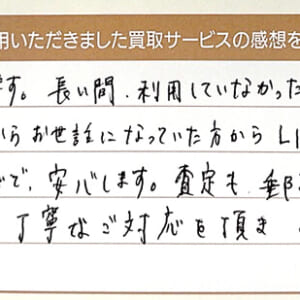 用いただきました買取サービスの感想を
す。長い間、利用していなかった
らお世話になっていた方から LI
で、安心します。査定も、郵
丁寧なご対応を頂ま